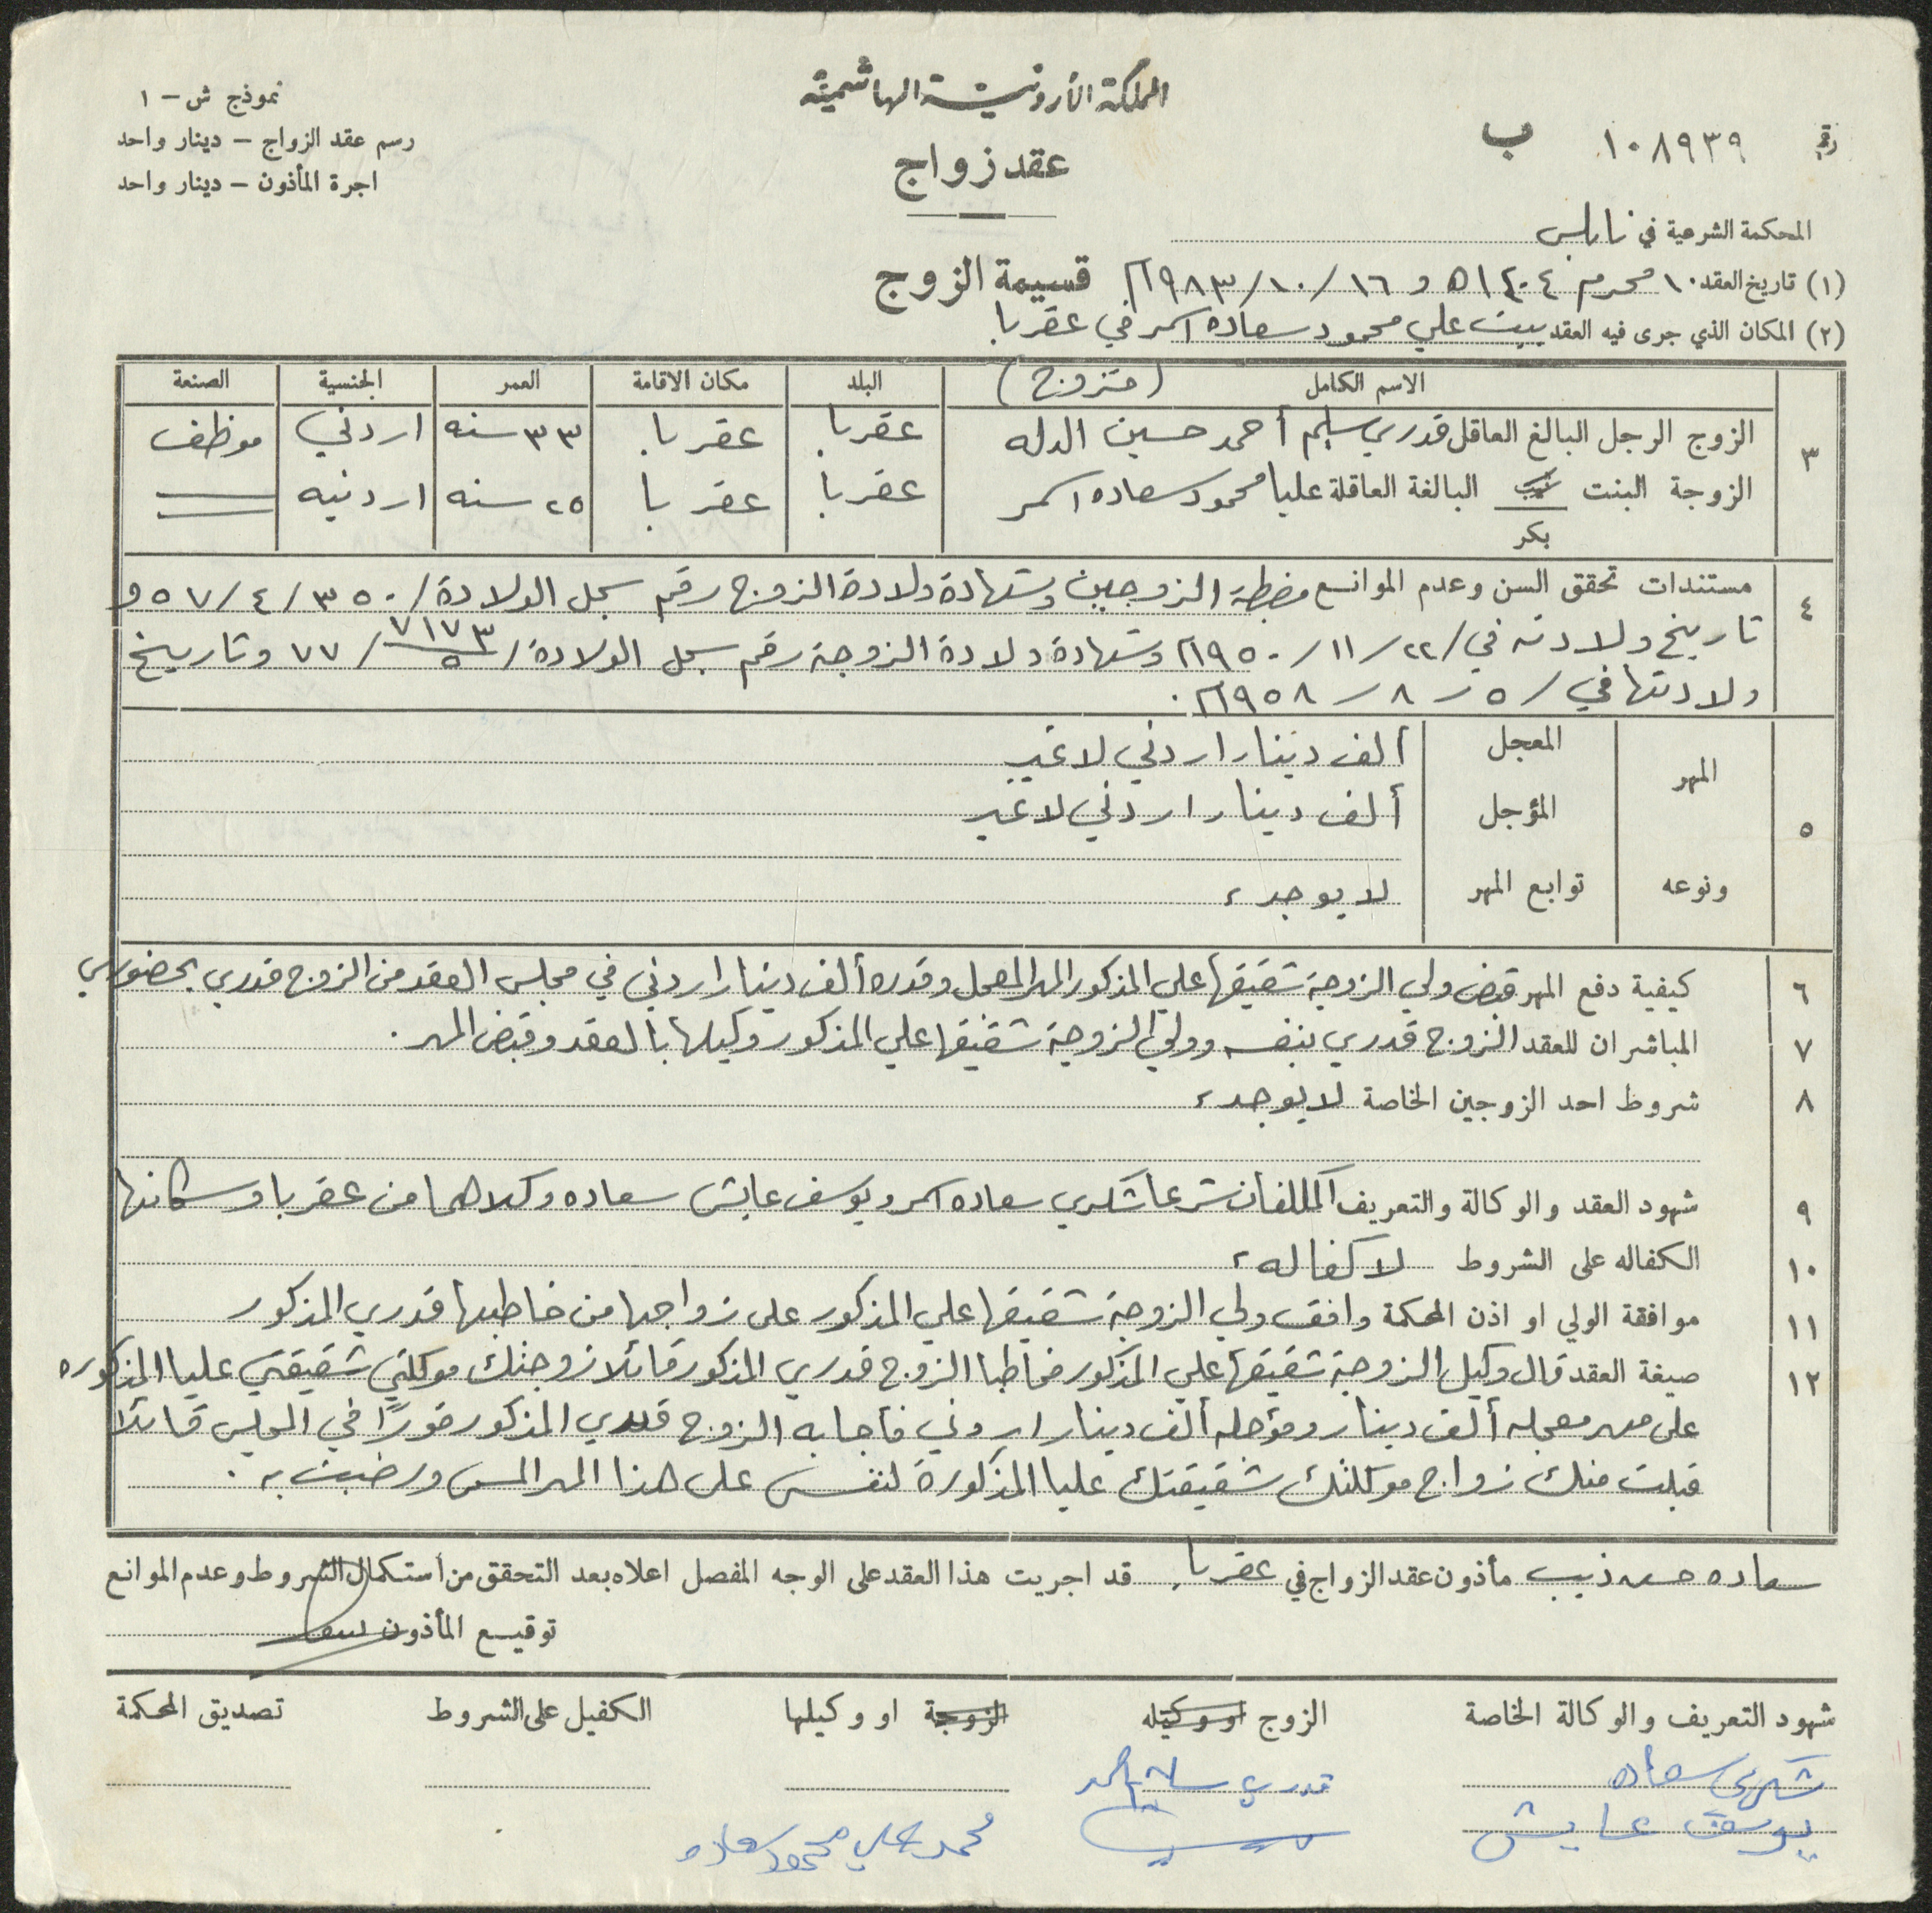 المملكة الأردنية الهاشمية
نموذج ش - ١
رسم عقد الزواج - دينار واحد
اجرة المأذون - دينار واحد
عقد زواج
رقم ١٠٨٩٣٩ ب
المحكمة الشرعية في نابلس
(١) تاريخ العقد ١٠ محرم ١٤٠٤ه و ١٦/١٠/١٩٨٣م قسيمة الزوج
(٢) المكان الذي جرى فيه العقد بيت علي محمود سعاده اسمر في عقربا.
٣ الاسم الكامل (متزوج) البلد مكان الاقامة العمر الجنسية الصنعة
الزوج الرجل البالغ العاقل قدري سليم أحمد حسين الدله عقربا عقربا ٣٣ سنه اردني موظف
الزوجة البنت ثيب البالغة العاقلة عليا محمود سعاده اسمر عقربا عقربا ٢٥ سنه اردنيه
بكر
٤ مستندات تحقق السن وعدم الموانع مضبطة الزوجين وشهادة ولادة الزوج رقم سجل الولادة/٣٥٠/٤/٥٧ و
تاريخ ولادته في/٢٢/١١/١٩٥٠م وشهادة ولادة الزوجة رقم سجل الولادة/٧١٧٣/٥/٧٧ وتاريخ
ولادتها في/٥/٨/١٩٥٨م.
٥ المهر المعجل ألف دينار اردني لا غير
المؤجل ألف دينار اردني لا غير
ونوعه توابع المهر لا يوجد،
٦ كيفية دفع المهر قبض ولي الزوجة شقيقها علي المذكور المهر المعجل وقدره ألف دينار اردني في مجلس العقد من الزوج قدري بحضوري
٧ المباشران للعقد الزوج قدري بنفسه وولي الزوجة شقيقها علي المذكور وكيلها بالعقد وقبض المهر.
٨ شروط احد الزوجين الخاصة لا يوجد،
٩ شهود العقد والوكالة والتعريف المكلفان شرعا شكري سعاده اسمر ويوسف عايش سعاده وكلاهما من عقربا وسكانها
١٠ الكفاله على الشروط لا كفاله،
١١ موافقة الولي او اذن المحكمة وافق ولي الزوجة شقيقها علي المذكور على زواجها من خاطبها قدري المذكور
١٢ صيغة العقد قال وكيل الزوجة شقيقها علي المذكور مخاطبا الزوج قدري المذكور قائلا زوجتك موكلتي شقيقتي عليا المذكوره
على مهر معجله ألف دينار ومؤجله ألف دينار اردني فأجابه الزوج قدري المذكور فورًا في المجلس قائلا
قبلت منك زواج موكلتك شقيقتك عليا المذكورة لنفسي على هذا المهر المسمى ورضيت به.
سعاده حسن ذيب مأذون عقد الزواج في عقربا. قد اجريت هذا العقد على الوجه المفصل اعلاه بعد التحقق من أستكمال الشروط وعدم الموانع
توقيع المأذون
شهود التعريف والوكالة الخاصة الزوج او وكيله الزوجة او وكيلها الكفيل على الشروط تصديق المحكمة
شكري سعاده قدري سليم احمد
يوسف عايش محمد علي محمود سعاده